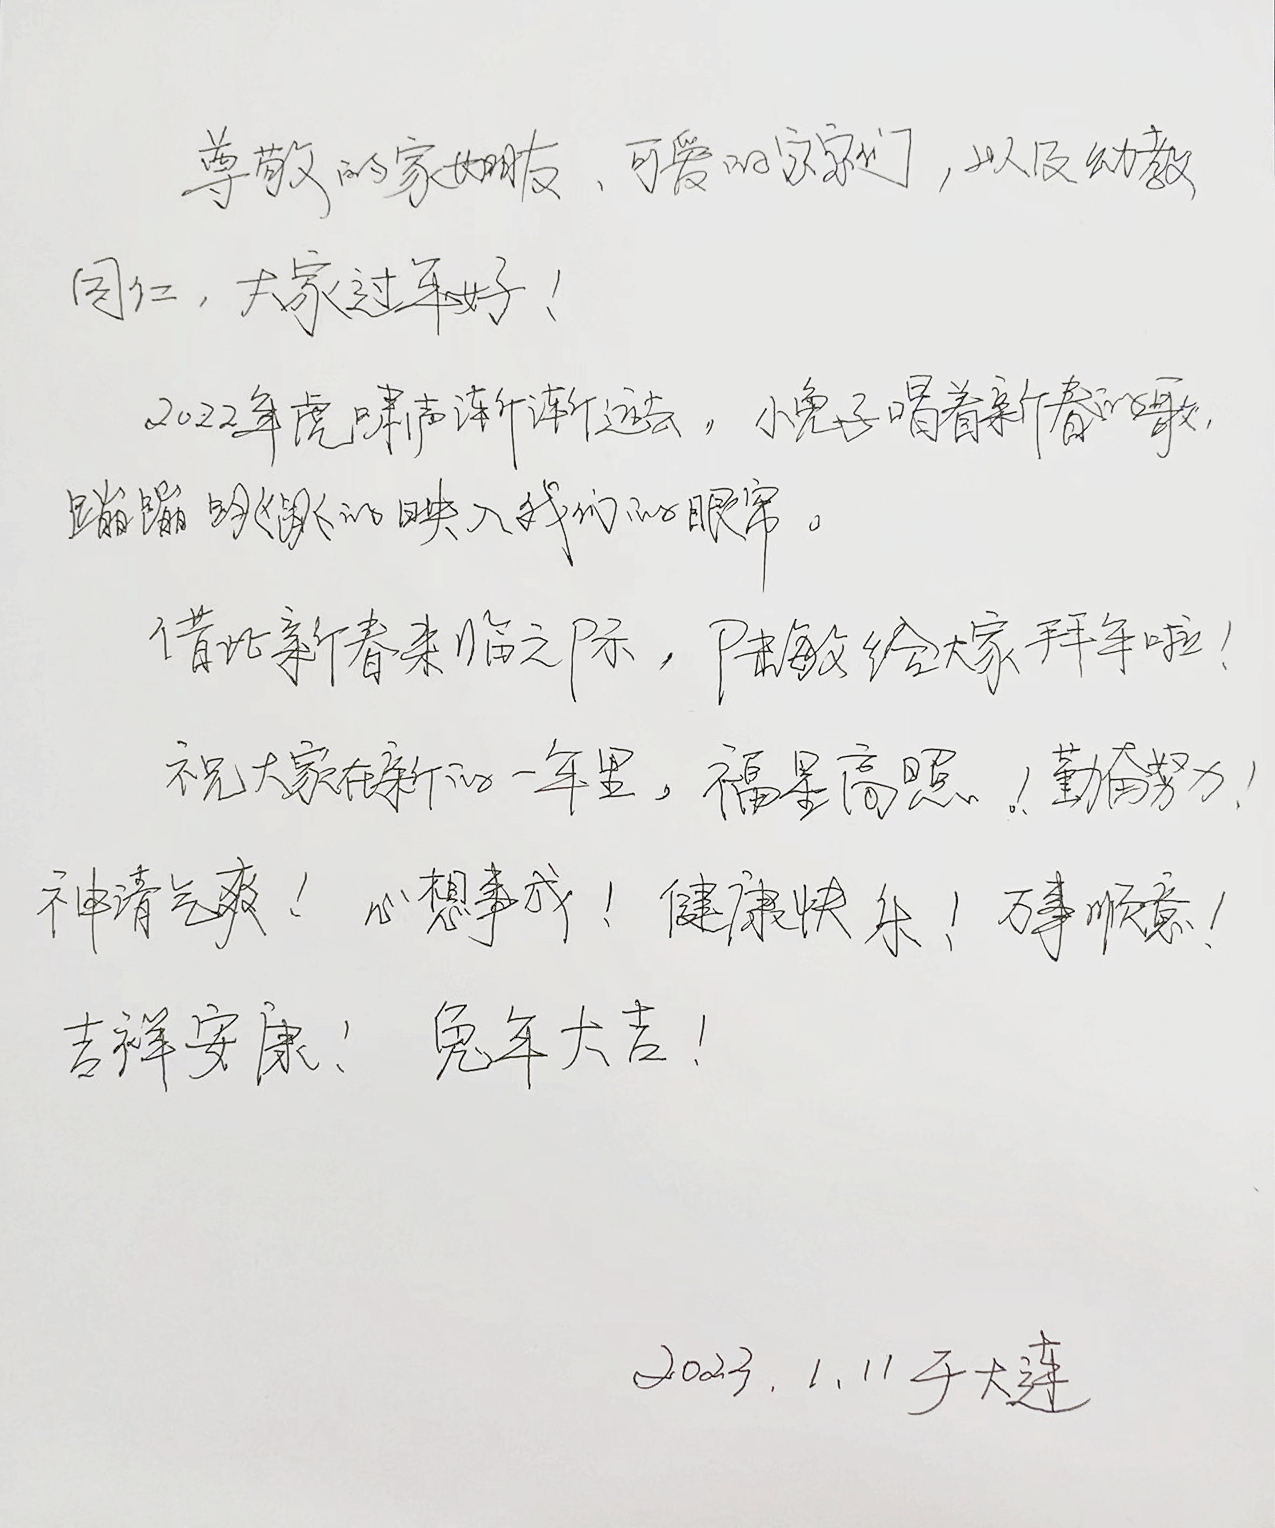 尊敬的家如朋友、可爱的家家们，以及幼教
同仁，大家过年好！
2022年虎啸声渐渐远去，小兔子唱着新春的歌，
蹦蹦跳跳的映入我们的眼帘。
借此新春来临之际，陆敏给大家拜年啦！
祝大家在新的一年里，福星高照！勤奋努力！
神清气爽！心想事成！健康快乐！万事顺意！
吉祥安康！兔年大吉！
2023.1.11于大连